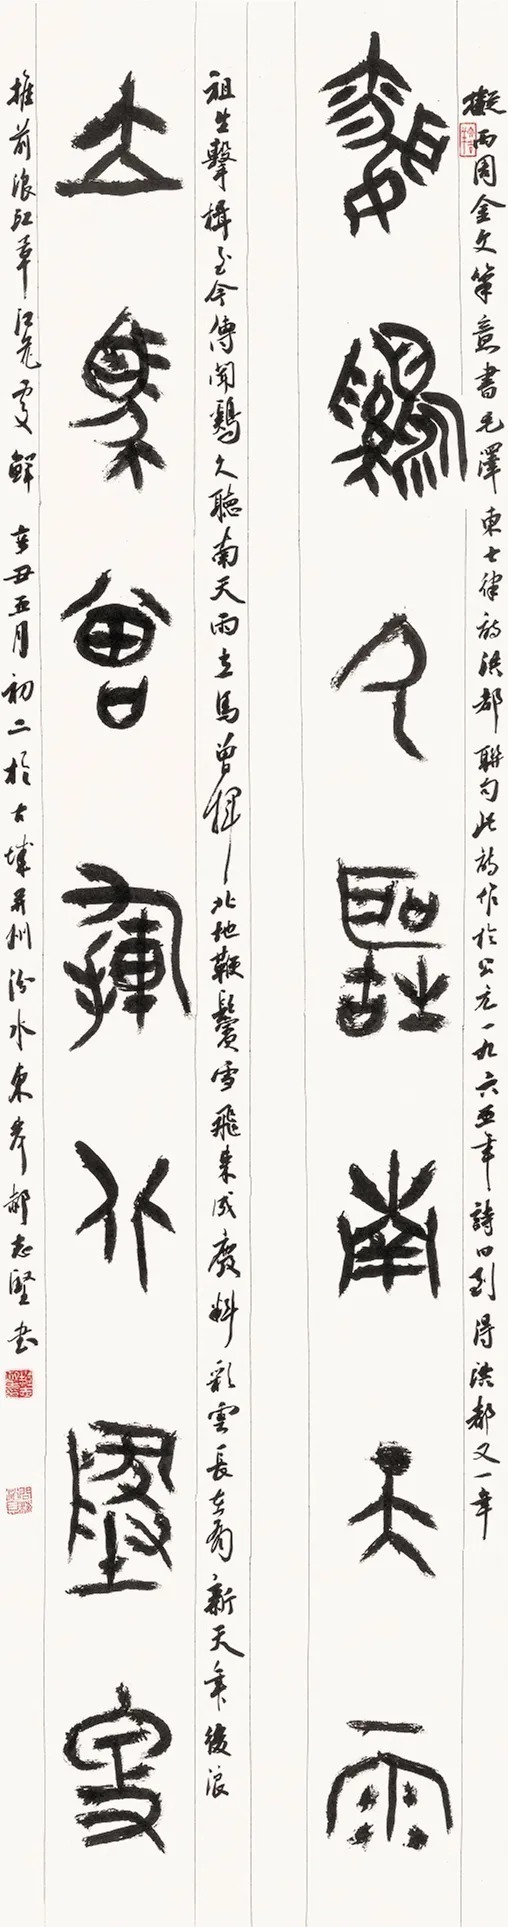 擬两周金文筆意書毛澤東七律詩洪都聯句此詩作於公元一九六五年詩曰到得洪都又一年
聞鷄久聽南天雨
祖生擊楫至今傳聞鷄久聽南天雨立馬曾揮北地鞭鬢雪飛來成廢料彩雲長在有新天年後浪
立馬曾揮北地鞭
推前浪江草江花處〻鮮 辛丑五月初二於古城并州汾水東岸郝志堅書